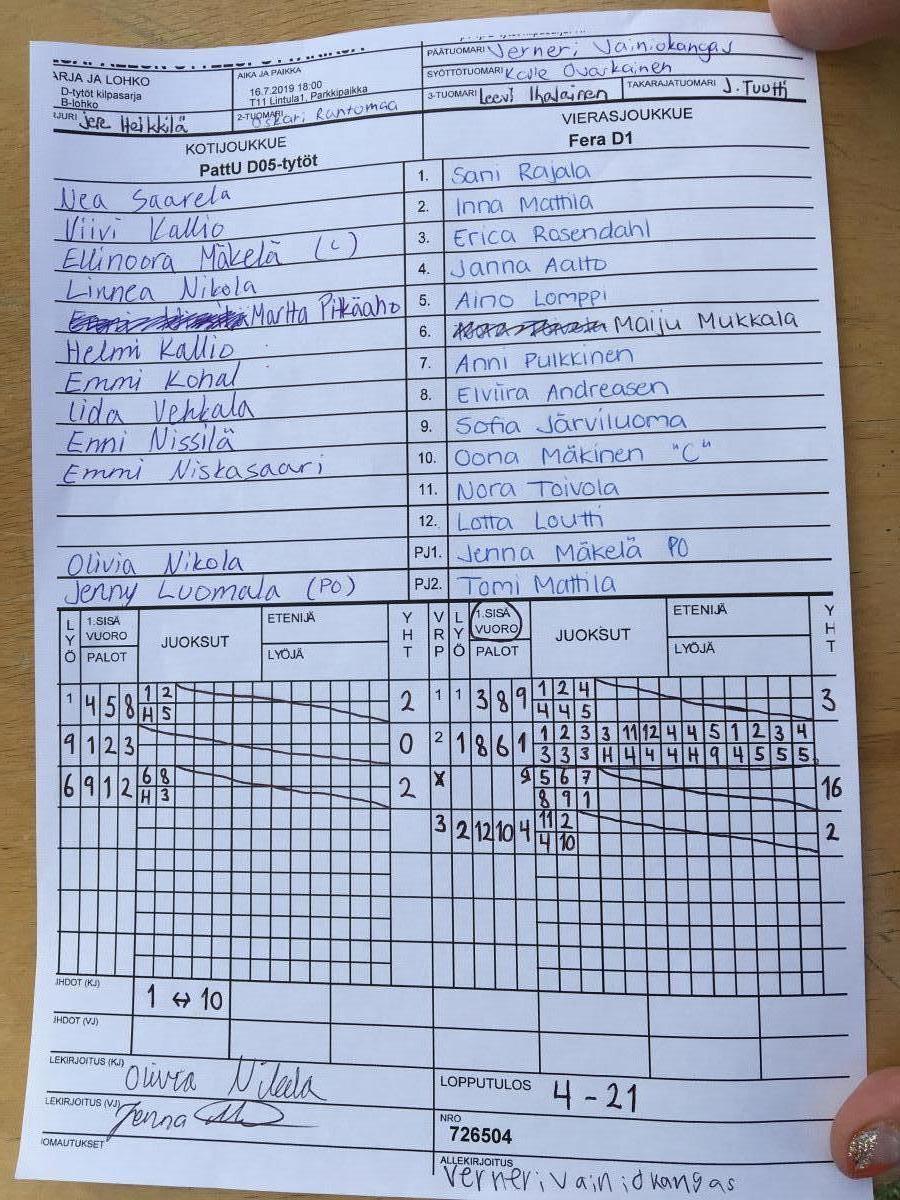 ARJA JA LOHKO
D-tytöt kilpasarja
B-lohko
AIKA JA PAIKKA
16.7.2019 18:00
T11 Lintula1, Parkkipaikka
PÄÄTUOMARI Verneri Vainiokangas
SYÖTTÖTUOMARI Kalle Ovaskainen
JURI Jere Heikkilä
2-TUOMARI Oskari Rantomaa
3-TUOMARI Leevi Ihalainen
TAKARAJATUOMARI J. Tuutti
KOTIJOUKKUE
PattU D05-tytöt
VIERASJOUKKUE
Fera D1
Nea Saarela 1. Sani Rajala
Viivi Kallio 2. Inna Mattila
Ellinoora Mäkelä (C) 3. Erica Rosendahl
Linnea Nikola 4. Janna Aalto
Martta Pitkäaho 5. Aino Lomppi
Helmi Kallio 6. Maiju Mukkala
Emmi Kohal 7. Anni Pulkkinen
Iida Vehkala 8. Elviira Andreasen
Enni Nissilä 9. Sofia Järviluoma
Emmi Niskasaari 10. Oona Mäkinen "C"
11. Nora Toivola
12. Lotta Loutti
Olivia Nikola PJ1. Jenna Mäkelä PO
Jenny Luomala (PO) PJ2. Tomi Mattila
LYÖ 1.SISÄ VUORO PALOT JUOKSUT ETENIJÄ LYÖJÄ YHT VRP LYÖ 1.SISÄ VUORO PALOT JUOKSUT ETENIJÄ LYÖJÄ YHT
1 4 5 8 1 2 2 1 1 3 8 9 1 2 4 3
H 5 4 4 5
9 1 2 3 0 2 1 8 6 1 1 2 3 3 11 12 4 4 5 1 2 3 4
3 3 3 H 4 4 4 H 9 4 5 5 5
6 9 1 2 6 8 2 X 9 5 6 7 16
H 3 8 9 1
3 2 12 10 4 11 2 2
4 10
IHDOT (KJ) 1 ↔ 10
IHDOT (VJ)
LEKIRJOITUS (KJ) Olivia Nikola
LEKIRJOITUS (VJ) Jenna
OMAUTUKSET
LOPPUTULOS 4 - 21
NRO
726504
ALLEKIRJOITUS
Verneri Vainiokangas